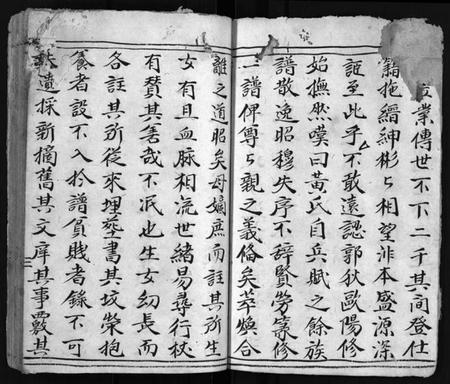 業傳世不下二千其間登仕
籍拖縉紳彬〻相望洋本盛源深
詎至此乎不敢遠認郭狄歐陽修
始撫然嘆曰黃氏自兵賦之餘族
譜散逸昭穆失序不辭賢勞篡修
一譜俾尊〻親之義俻矣萃煥合
離之道昭矣母嫡庶而註其所生
女有且血脉相流世緒易尋行杖
有賛其善哉不泯也生女幼長而
各註其所從來埋塟書其坟螢抱
養者設不入於譜貧賤者錄不可
遺採新摘舊其文庫其事覈其